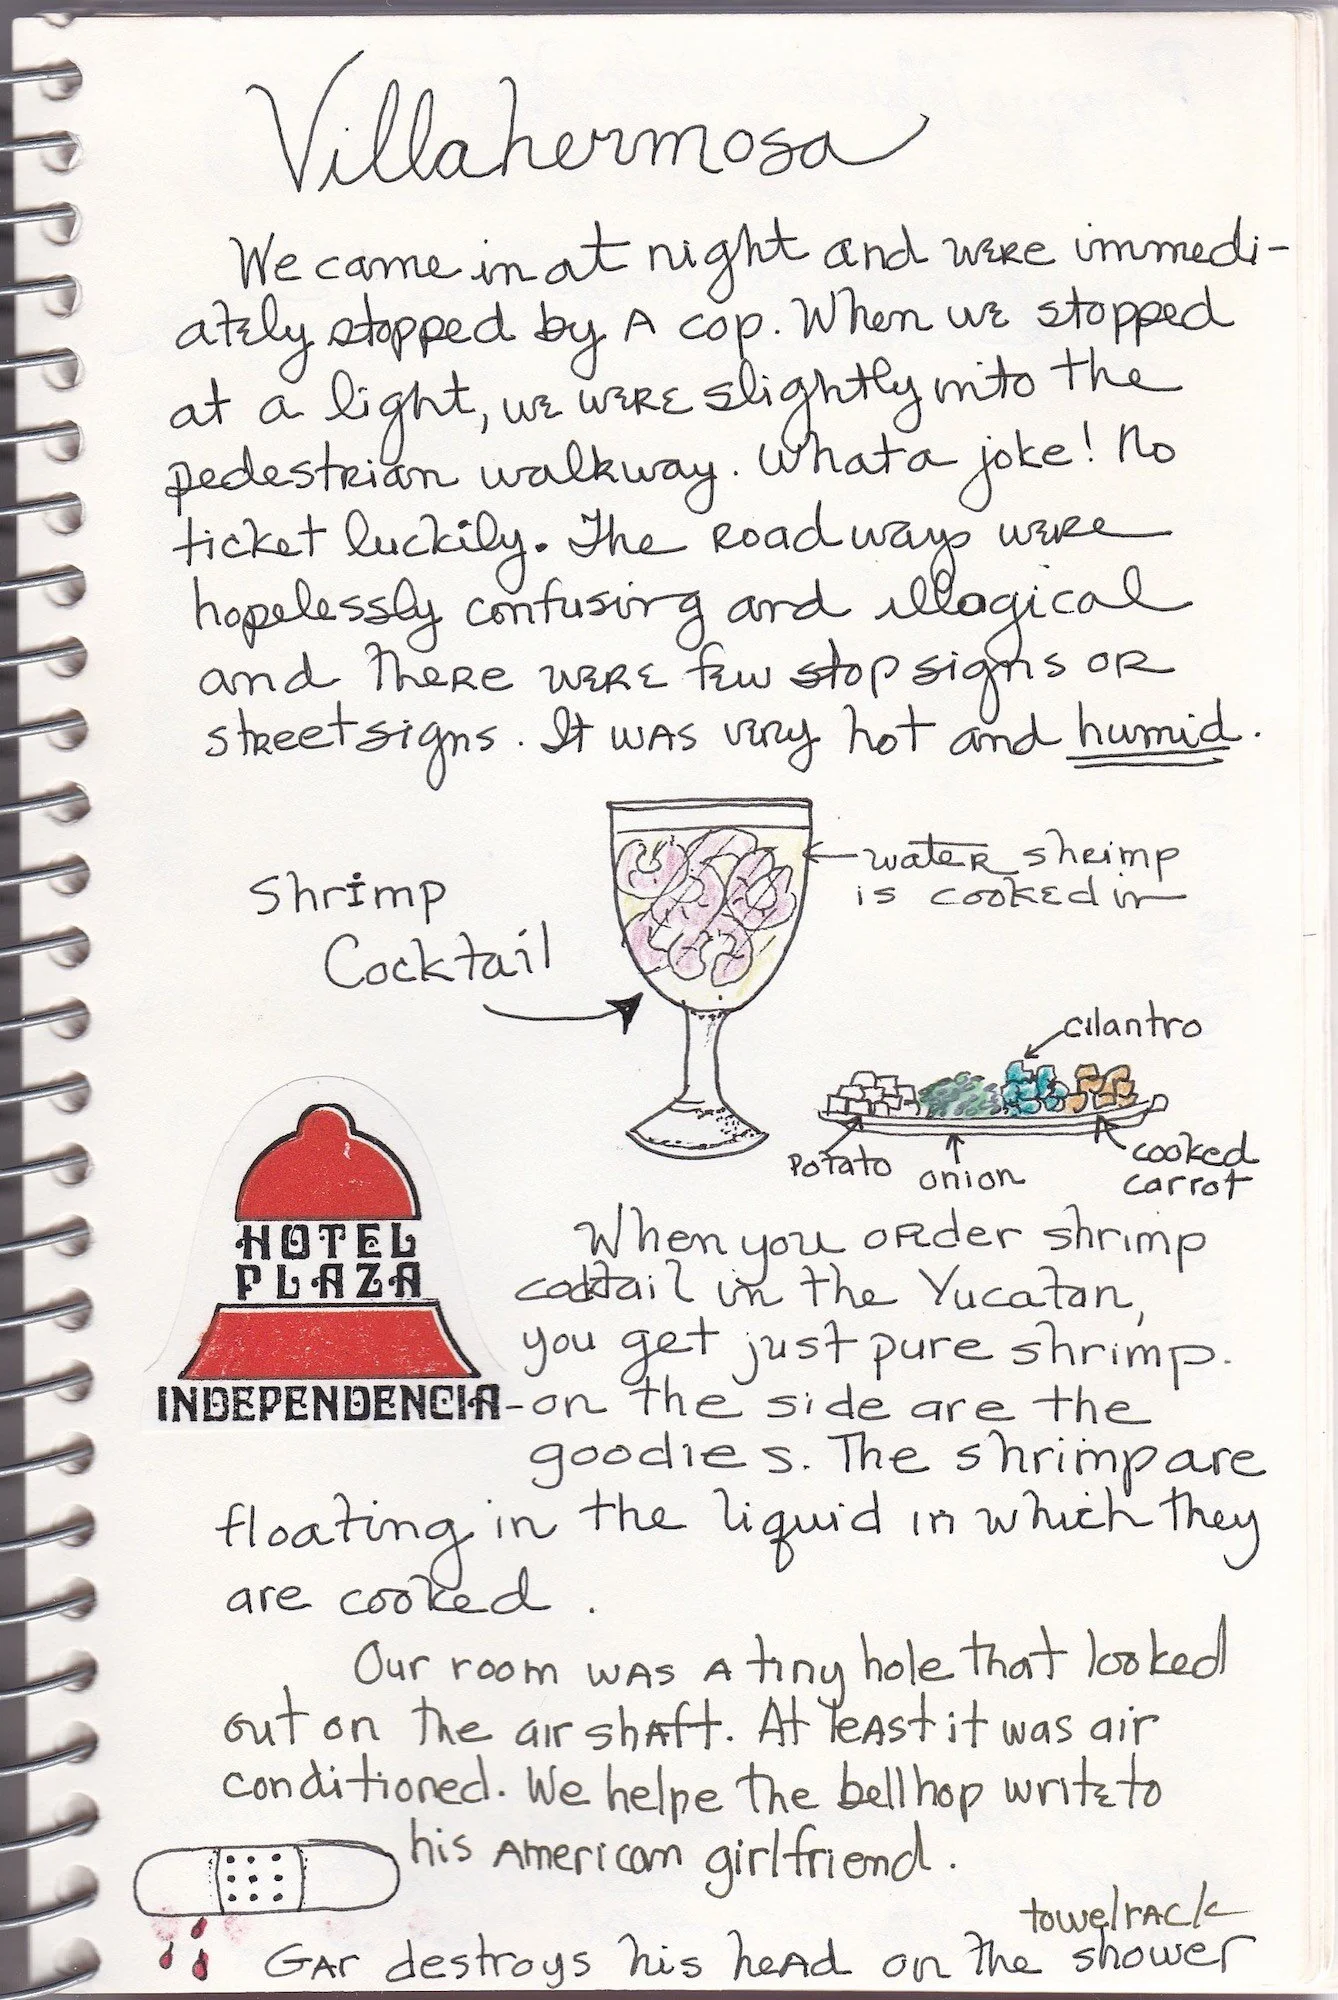 Villahermosa
We came in at night and were immedi-
ately stopped by A cop. When we stopped
at a light, we were slightly into the
pedestrian walkway. What a joke! No
ticket luckily. The roadways were
hopelessly confusing and illogical
and there were few stop signs or
street signs. It was very hot and humid.
Shrimp
Cocktail
water shrimp
is cooked in
cilantro
potato
onion
cooked
carrot
HOTEL
PLAZA
INDEPENDENCIA
When you order shrimp
cocktail in the Yucatan,
you get just pure shrimp.
-on the side are the
goodies. The shrimp are
floating in the liquid in which they
are cooked.
Our room was a tiny hole that looked
out on the air shaft. At least it was air
conditioned. We helpe the bellhop write to
his American girlfriend.
towel rack
Gar destroys his head on the shower